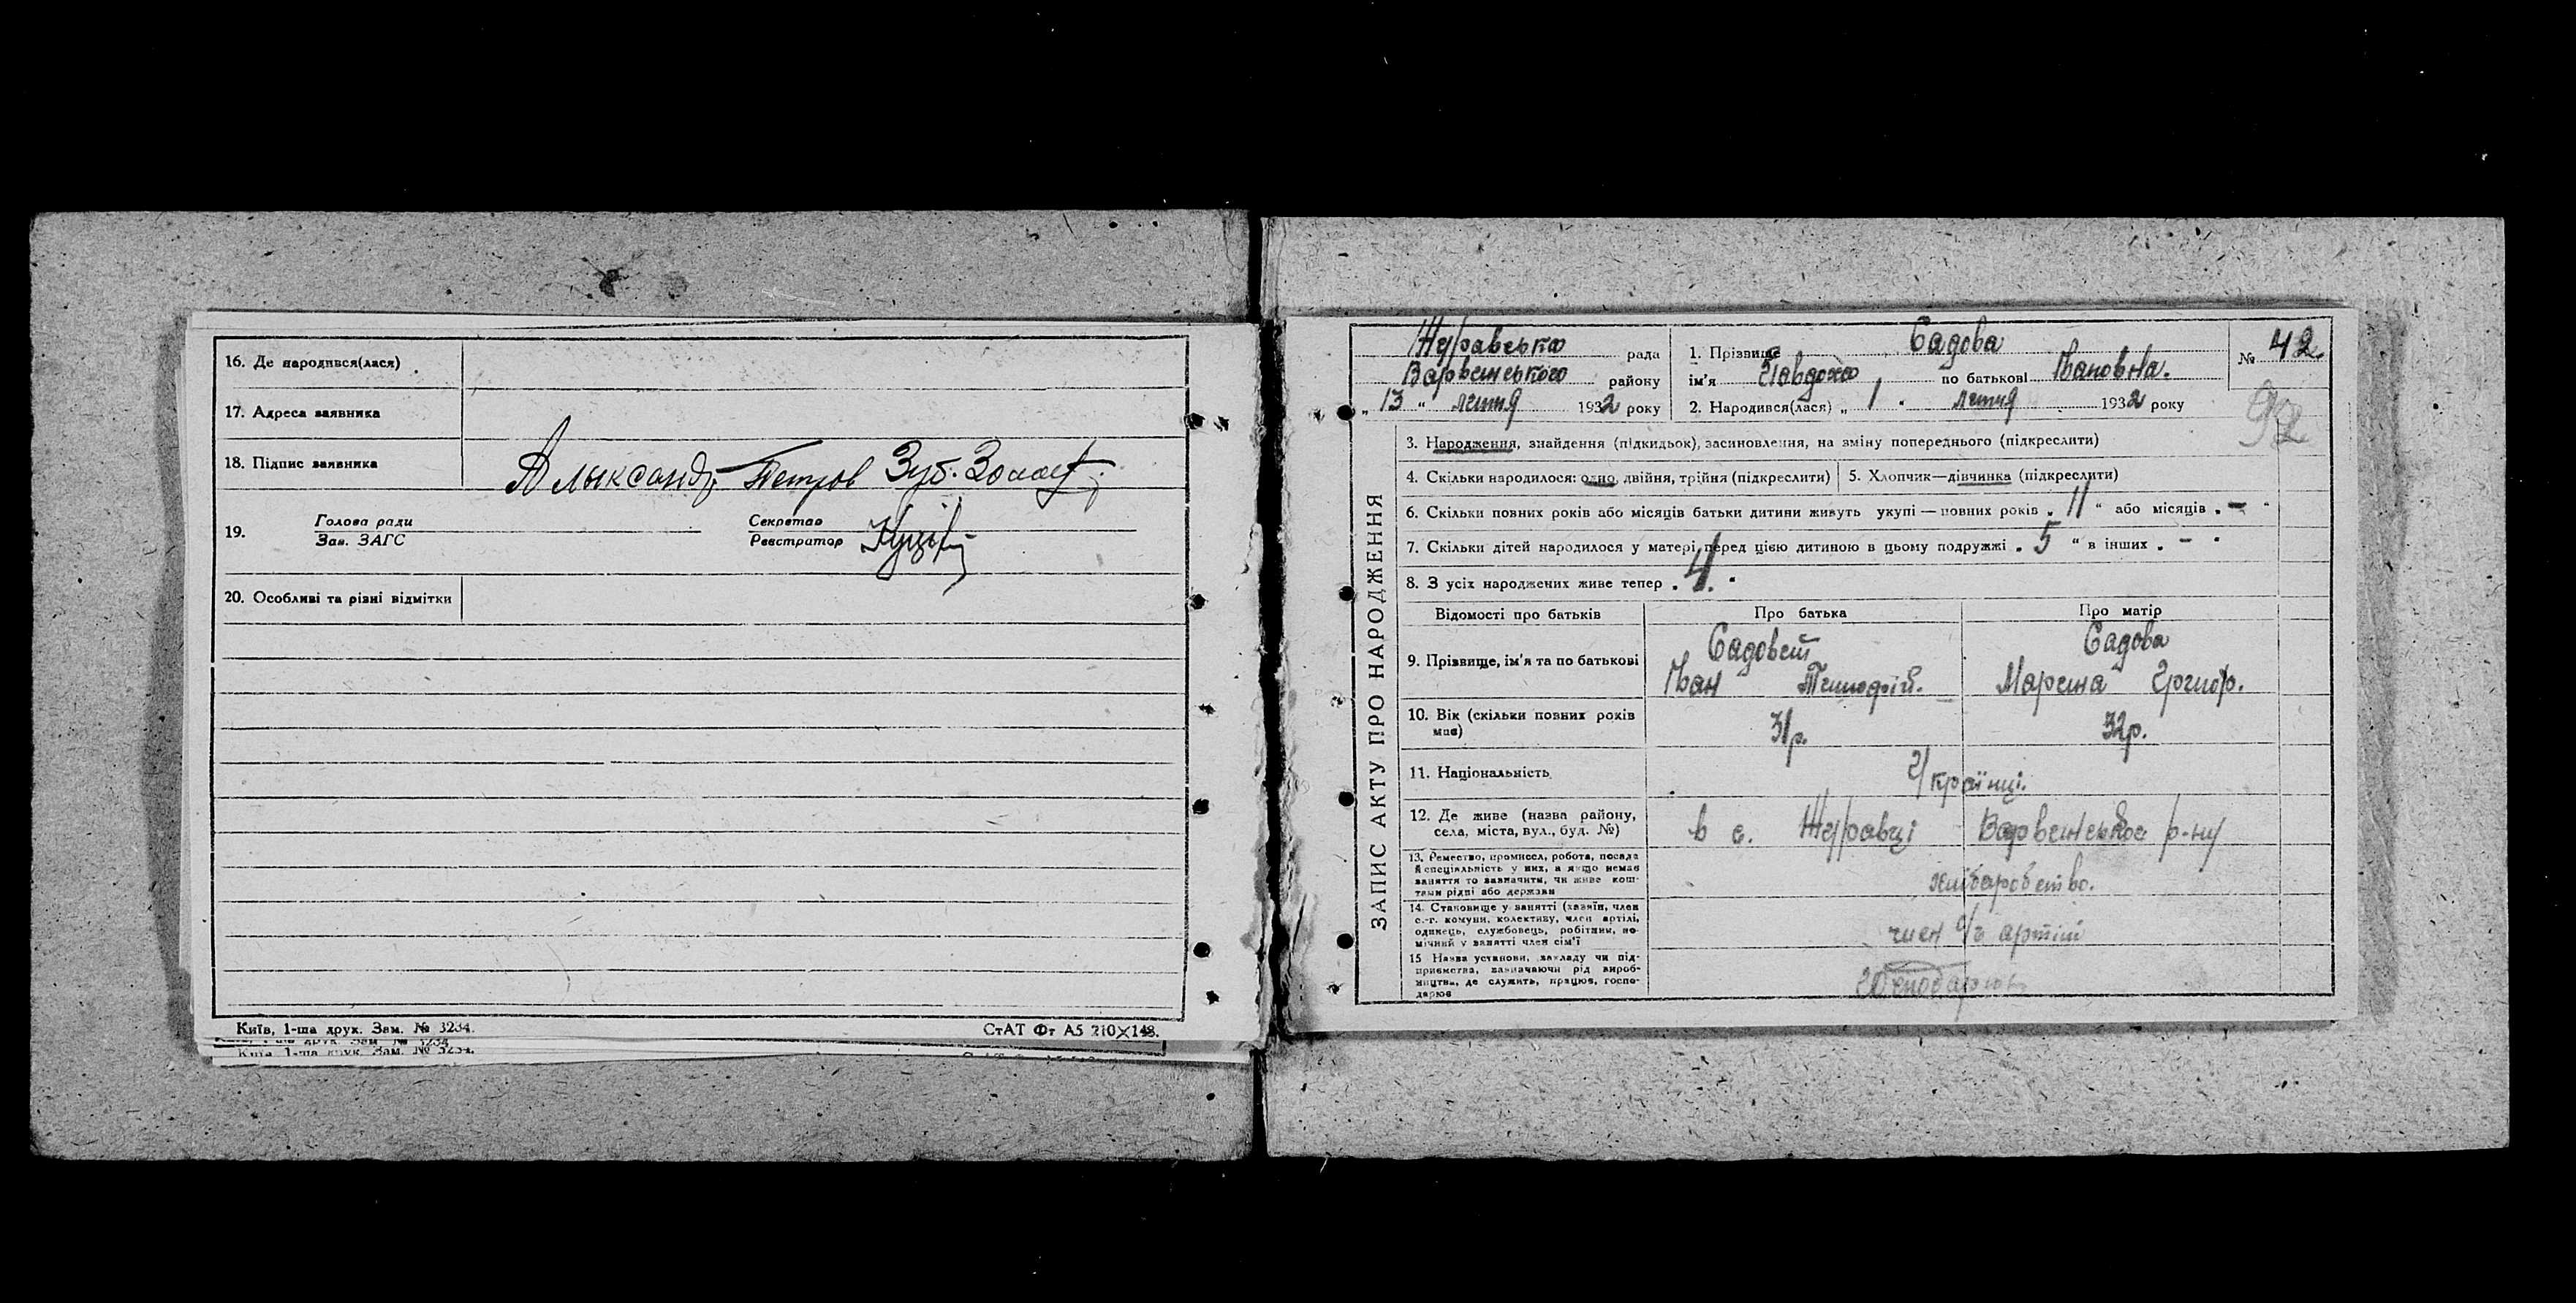 16. Де народився(лася)
17. Адреса заявника
18. Підпис заявника
Петров
19. Голова ради
Зав. ЗАГС
Секретар
Реєстратор
20. Особливі та різні відмітки
Київ, 1-ша друк. Зам. № 3234.
СтАТ Фт А5 210×148.
Київ, 1-ша друк. Зам. № 3234.
ЗАПИС АКТУ ПРО НАРОДЖЕННЯ
Журавська рада
Варвинського району
„ 13 “ липня 1932 року
1. Прізвище Садова
ім'я Явдоха по батькові Івановна.
2. Народився(лася) „ 1 “ липня 1932 року
№ 42
92
3. Народження, знайдення (підкидьок), засиновлення, на зміну попереднього (підкреслити)
4. Скільки народилося: одно, двійня, трійня (підкреслити)
5. Хлопчик—дівчинка (підкреслити)
6. Скільки повних років або місяців батьки дитини живуть укупі — повних років „ 11 “ або місяців „ – “
7. Скільки дітей народилося у матері перед цією дитиною в цьому подружжі „ 5 “ в інших „ – “
8. З усіх народжених живе тепер „ 4 “
Відомості про батьків
Про батька
Про матір
9. Прізвище, ім'я та по батькові
Садовий
Іван Тимофій.
Садова
Марина Григор.
10. Вік (скільки повних років має)
31р.
32р.
11. Національність
Українці.
12. Де живе (назва району,
села, міста, вул., буд. №)
в с. Журавці Варвинського р-ну
13. Ремество, промисел, робота, посада
й спеціяльність у них, а якщо немає
заняття то зазначити, чи живе кош-
тами рідні або держави
хліборобство.
14. Становище у занятті (хазяїн, член
с.-г. комуни, колективу, член артілі,
одинець, службовець, робітник, по-
мічний у занятті член сім'ї
член с/г артілі
15 Назва установи, закладу чи під-
приємства, зазначаючи рід вироб-
ництва, де служить, працює, госпо-
дарює